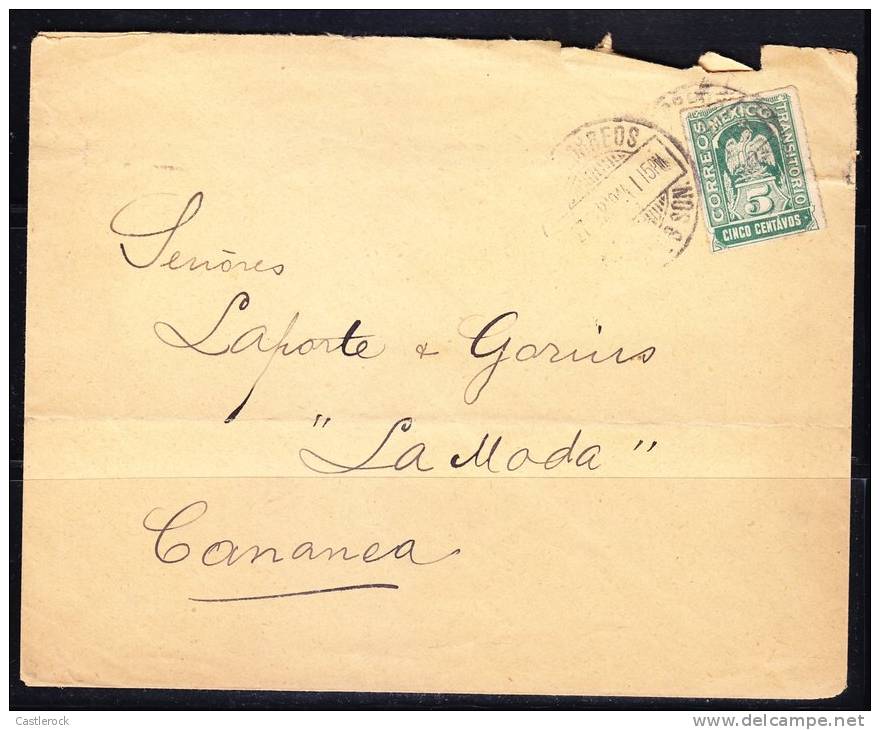 CORREOS MEXICO TRANSITORIO
5
CINCO CENTAVOS
SON.
1 15PM
Señores
Laporte & Gorius
"La Moda"
Cananea
Castlerock
www.delcampe.net